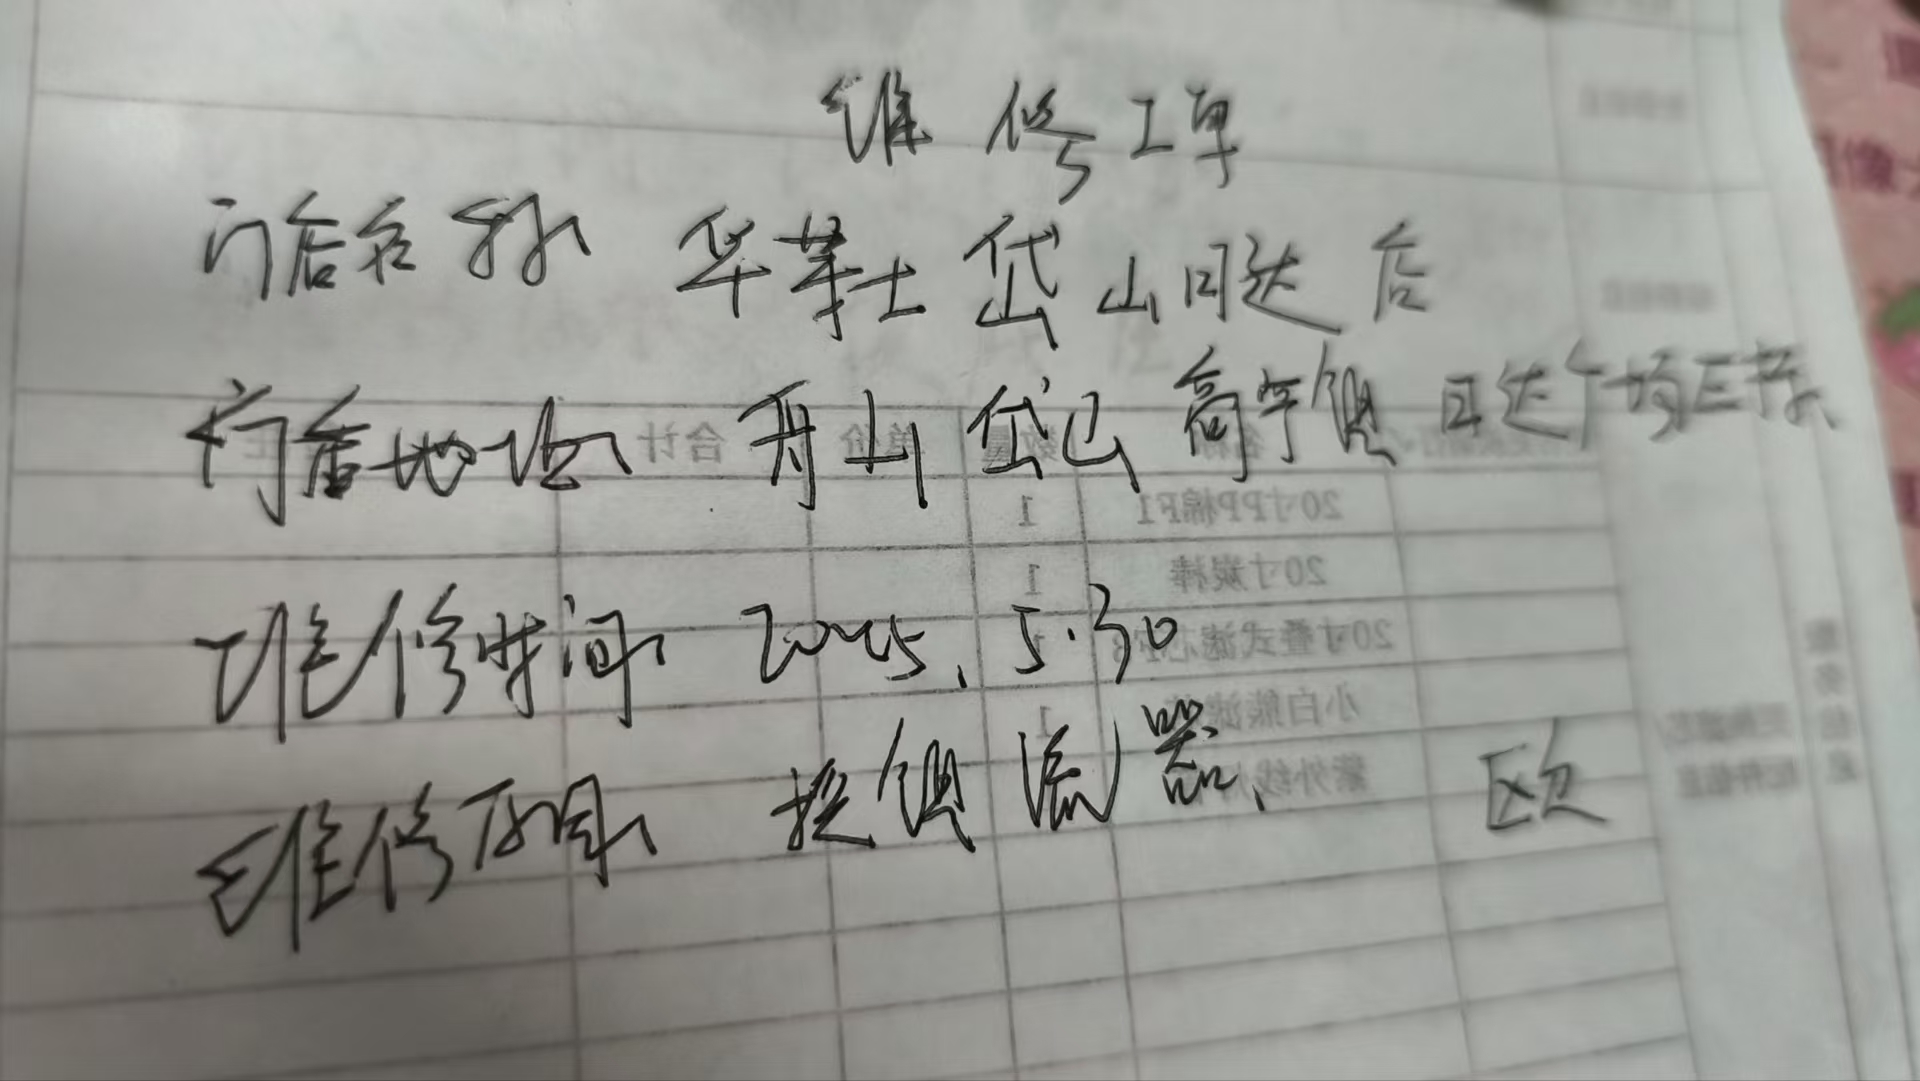 维修工单
门店名称 华莱士岱山日达店
门店地址 舟山岱山高亭镇日达广场三楼
维修时间 2025.5.30
维修项目 换镇流器、 区
合计 单价 数量 名称
1 20寸PP棉F1
1 20寸炭棒
20寸叠式滤芯
1 小白熊滤
紫外线